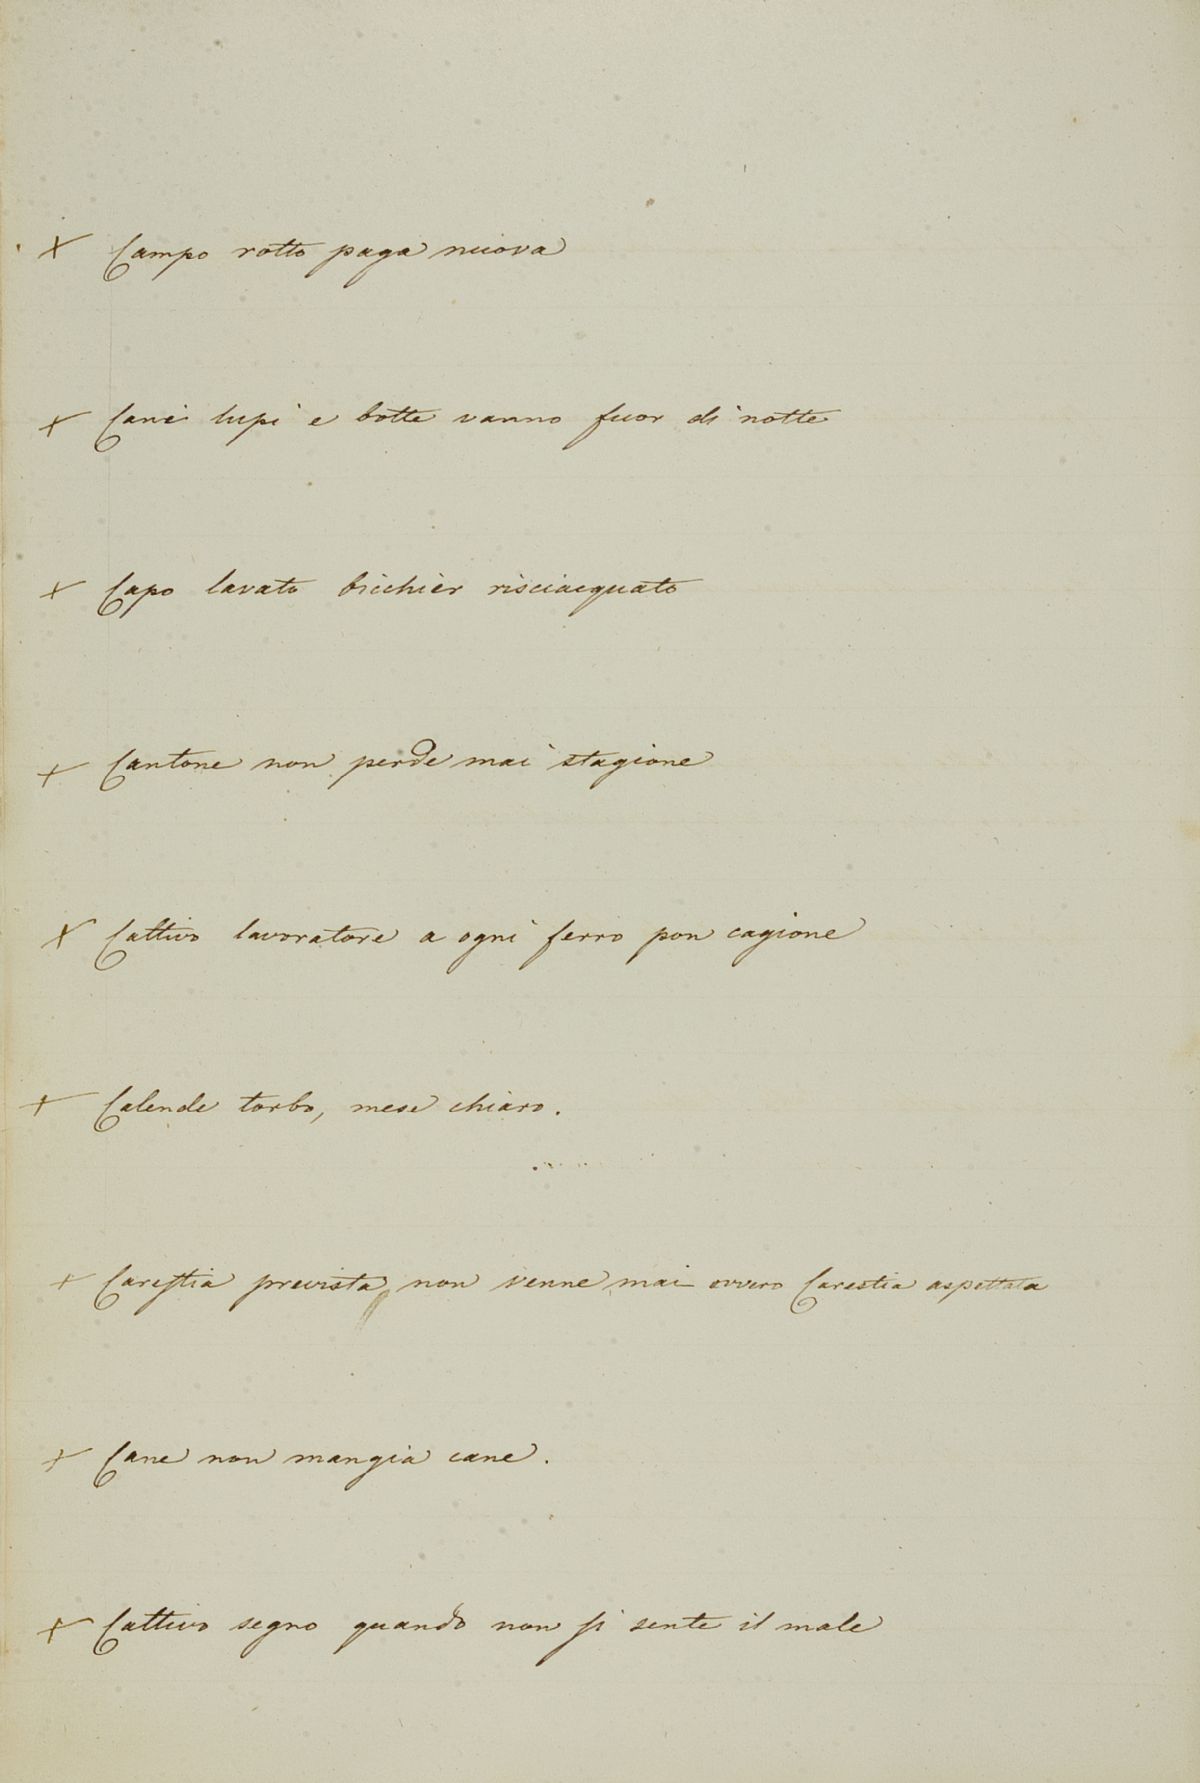 × Campo rotto paga nuova
× Cani lupi e botte vanno fuor di notte
× Capo lavato bicchier risciacquato
× Cantone non perde mai stagione
× Cattivo lavoratore a ogni ferro pon cagione
× Calende torbo, mese chiaro.
× Carestia prevista non venne mai ovvero Carestia aspettata
× Cane non mangia cane.
× Cattivo segno quando non si sente il male